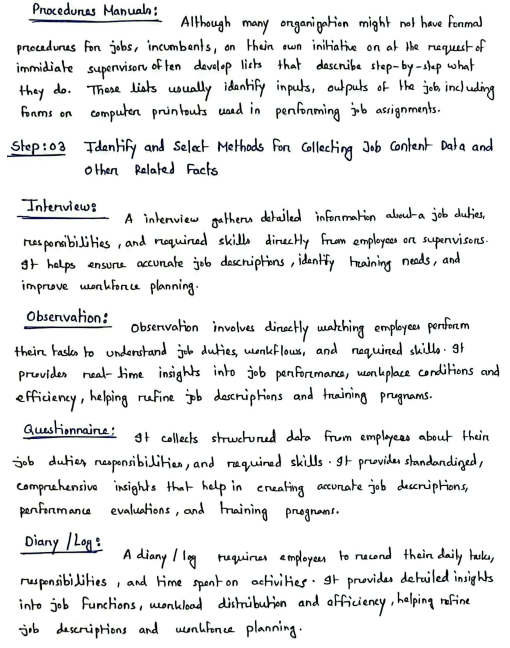 Procedures Manuals: Although many organization might not have formal
procedures for jobs, incumbents, on their own initiative on at the request of
immidiate supervisors often develop lists that describe step-by-step what
they do. These lists usually identify inputs, outputs of the job, including
forms on computer printouts used in performing job assignments.
Step:03 Identify and Select Methods For Collecting Job Content Data and
Other Related Facts
Interview: A interview gathers detailed information about a job duties,
responsibilities, and required skills directly from employees or supervisors.
It helps ensure accurate job descriptions, identify training needs, and
improve workforce planning.
Observation: Observation involves directly watching employees perform
their tasks to understand job duties, workflows, and required skills. It
provides real-time insights into job performance, workplace conditions and
efficiency, helping refine job descriptions and training programs.
Questionnaire: It collects structured data from employees about their
job duties responsibilities, and required skills. It provides standardized,
comprehensive insights that help in creating accurate job descriptions,
performance evaluations, and training programs.
Diary/Log: A diary/log requires employees to record their daily tasks,
responsibilities, and time spent on activities. It provides detailed insights
into job functions, workload distribution and efficiency, helping refine
job descriptions and workforce planning.